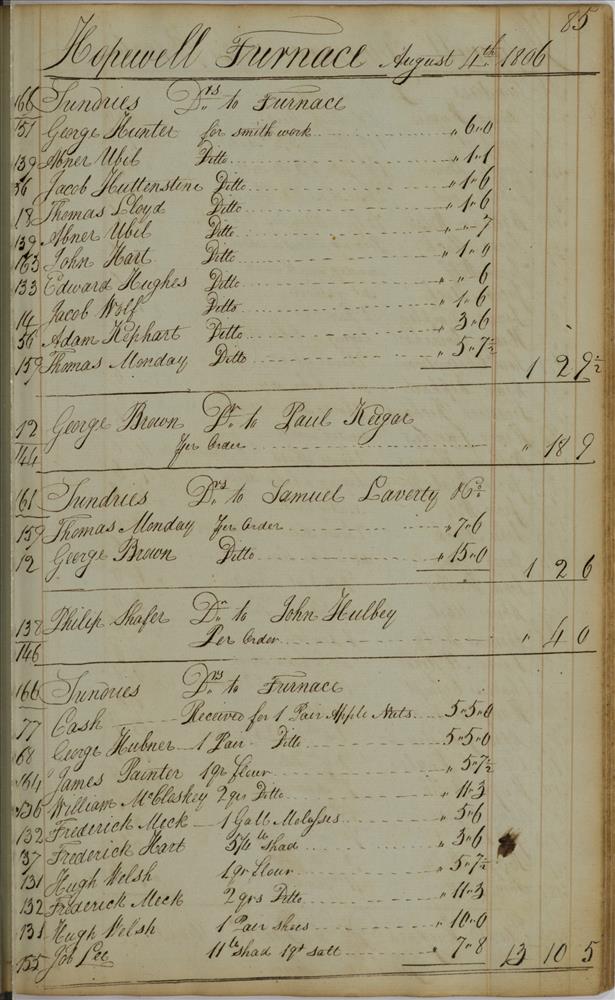 85
Hopewell Furnace August 4th 1806
166 Sundries Drs to Furnace
151 George Hunter for smith work " 6 " 0
139 Abner Ubil Ditto " 1 " 1
56 Jacob Huttenstine Ditto " 1 " 6
18 Thomas Lloyd Ditto " 1 " 6
139 Abner Ubil Ditto " " 7
163 John Hart Ditto " 1 " 0
133 Edward Hughes Ditto " " 6
14 Jacob Wolf Ditto " 1 " 6
56 Adam Kephart Ditto " 3 " 6
159 Thomas Monday Ditto " 5 " 7½ 1 2 9½
12 George Brown Dr to Paul Kegar
144 Per Order " 18 9
161 Sundries Drs to Samuel Laverty & Co.
159 Thomas Monday Per Order " 7 " 6
12 George Brown Ditto " 15 " 0 1 2 6
138 Philip Shafer Dr to John Hulbey
146 Per Order " 4 0
166 Sundries Drs to Furnace
77 Cash Received for 1 Pair Apple Nuts 5 " 5 " 0
68 George Hubner 1 Pair Ditto 5 " 5 " 0
James Painter 1 qr flour " 5 " 7½
William McClaskey 2 qrs Ditto " 11 " 3
132 Frederick Meck 1 Gall Molasses " 5 " 6
137 Frederick Hart shad " 3 " 6
131 Hugh Welsh 1 qr flour " 5 " 7½
132 Frederick Meck 2 qrs Ditto " 11 " 3
131 Hugh Welsh 1 Pair shoes " 10 " 0
155 Job Lee 11 lb shad 1 qt salt " 7 " 8 13 10 5